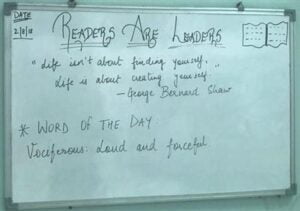 DATE
2/8/18
READERS ARE LEADERS
"Life isn't about finding yourself.
Life is about creating yourself."
- George Bernard Shaw
* WORD OF THE DAY:
Vociferous: Loud and forceful